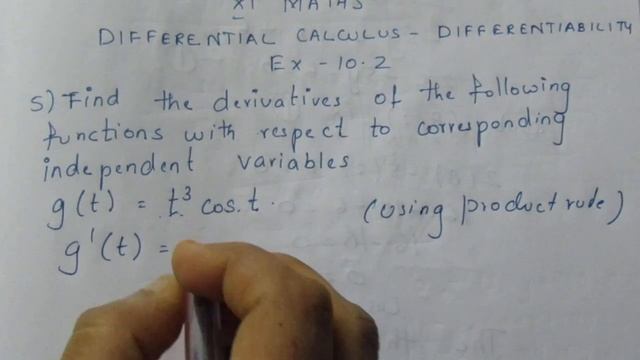 XI MATHS
DIFFERENTIAL CALCULUS - DIFFERENTIABILITY
Ex - 10.2
5) Find the derivatives of the following
functions with respect to corresponding
independent variables
g(t) = t³ cos.t. (using product rule)
g'(t) =